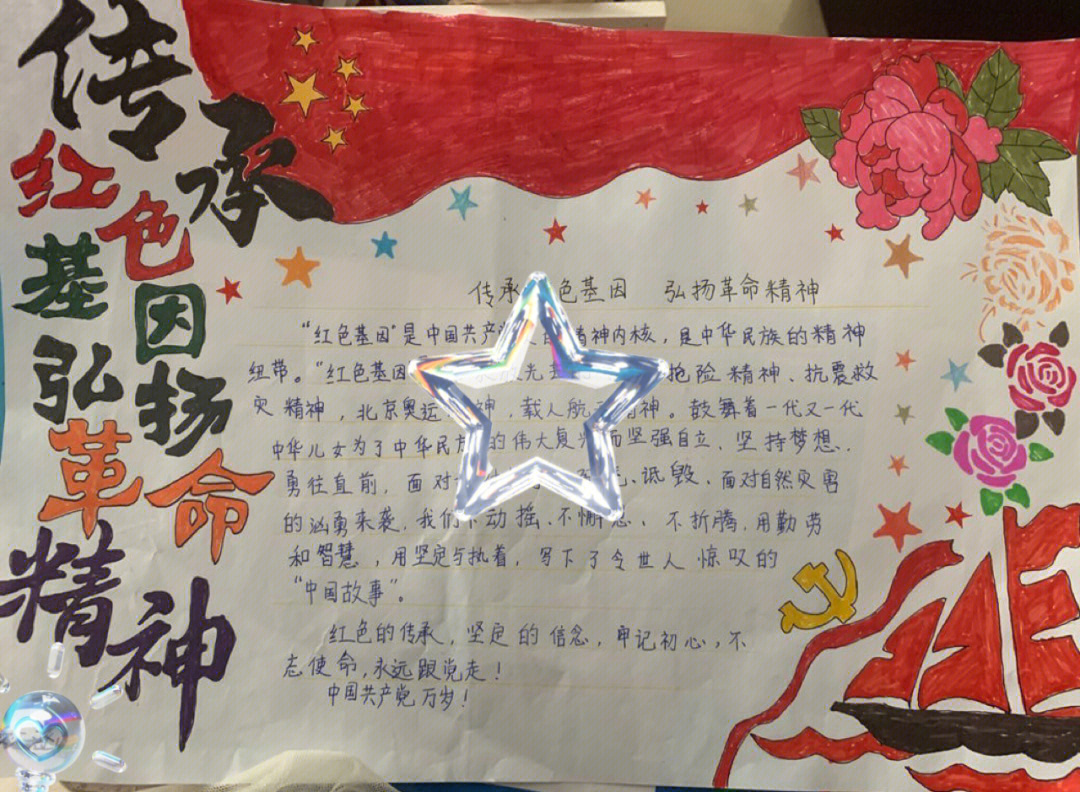 传承
红色
基因
弘扬
革命
精神
传承 色基因 弘扬革命精神
“红色基因”是中国共产 精神内核，是中华民族的精神
纽带。“红色基因 先 抢险精神、抗震救
灾精神，北京奥运 神，载人航 精神。鼓舞着一代又一代
中华儿女为了中华民族的伟大复兴而坚强自立、坚持梦想、
勇往直前，面对 、诋毁、面对自然灾害
的汹勇来袭，我们不动摇、不懈怠、不折腾，用勤劳
和智慧，用坚定与执着，写下了令世人惊叹的
“中国故事”。
红色的传承，坚定的信念，牢记初心，不
忘使命，永远跟党走！
中国共产党万岁！